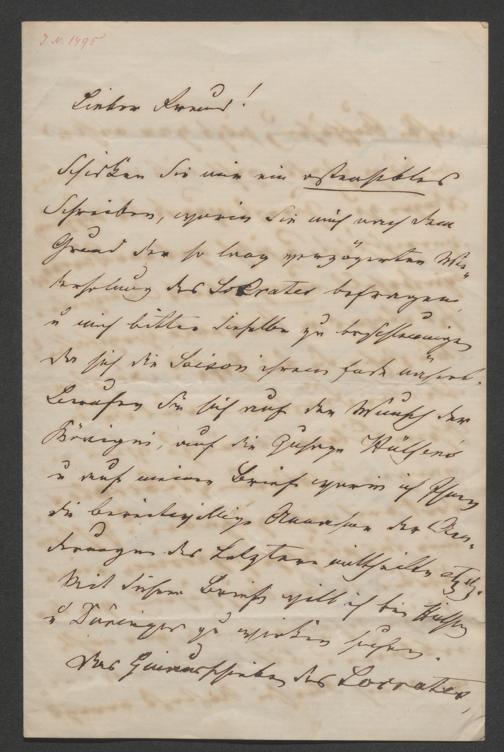 J. N. 1495
Lieber Freund!
Schicken Sie mir ein ostensibles
Schreiben, worin Sie mich nach dem
Grund der so lang verzögerten Wie-
derholung des Sokrates befragen,
u mich bitten dieselbe zu beschleunigen
da sich die Saison ihrem Ende nähert.
Berufen Sie sich auf den Wunsch der
Königin, auf die Zusage Hülsens
u auf meinen Brief worin ich Ihnen
die bereitwillige Annahme der Aen-
derungen des Letztern mittheilte
Mit diesem Briefe will ich bei Hülsen
u Düringer zu wirken suchen.
Das Hinausschieben des Socrates,